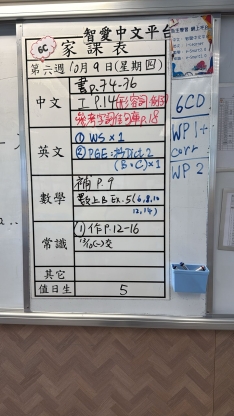 智愛中文平台
6C 家課表
第六週 10月9日(星期四)
中文
書p.74-76
工 P.14
參考字詞佳句庫p.18
英文
① WS x 1
數學
補 P.9
數上B Ex.5(6,8,10
12,14)
常識
(1)作P.12-16
其它
值日生
5
6CD
WP1+
corr
WP2